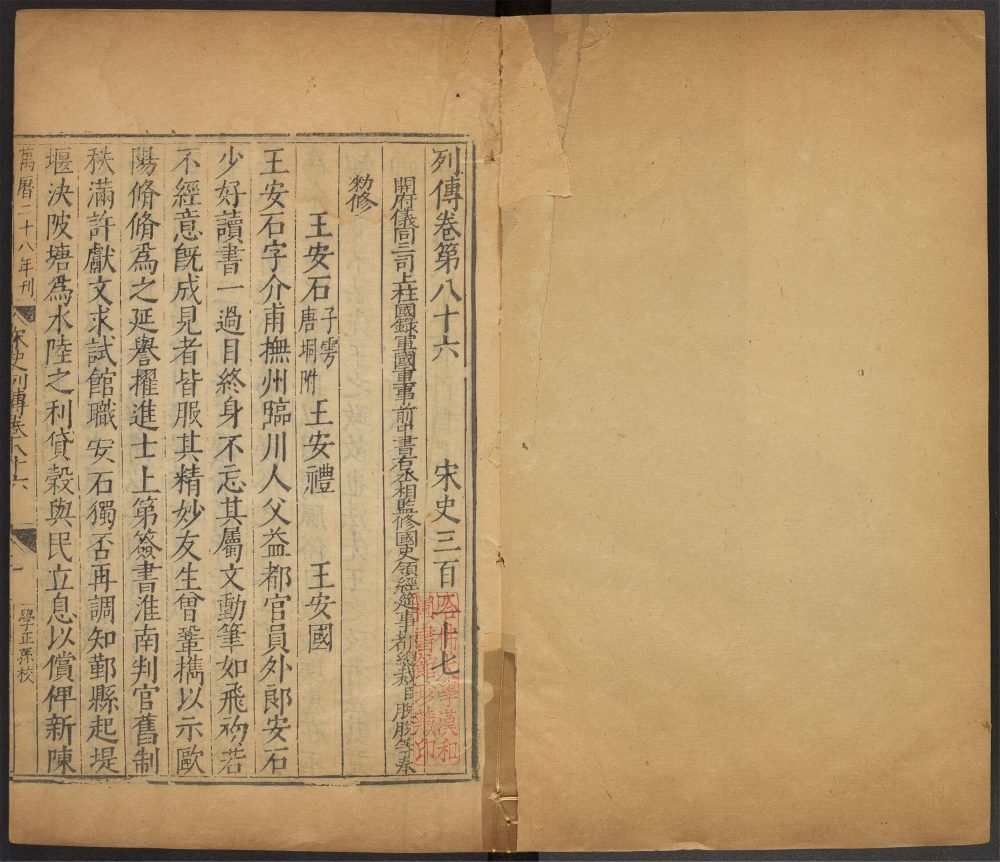 列傳卷第八十六 宋史三百二十七
開府儀同三司上柱國錄軍國重事前中書右丞相監修國史領經筵事都總裁臣脫脫等奉
勑修
王安石 子雱 唐坰附 王安禮 王安國
王安石字介甫撫州臨川人父益都官員外郎安石
少好讀書一過目終身不忘其屬文動筆如飛初若
不經意既成見者皆服其精妙友生曾鞏攜以示歐
陽脩脩爲之延譽擢進士上第簽書淮南判官舊制
秩滿許獻文求試館職安石獨否再調知鄞縣起堤
堰決陂塘爲水陸之利貸穀與民立息以償俾新陳
萬曆二十八年刊 宋史列傳卷八十六 一 學正孫校
哈佛大學漢和
圖書館珍藏印